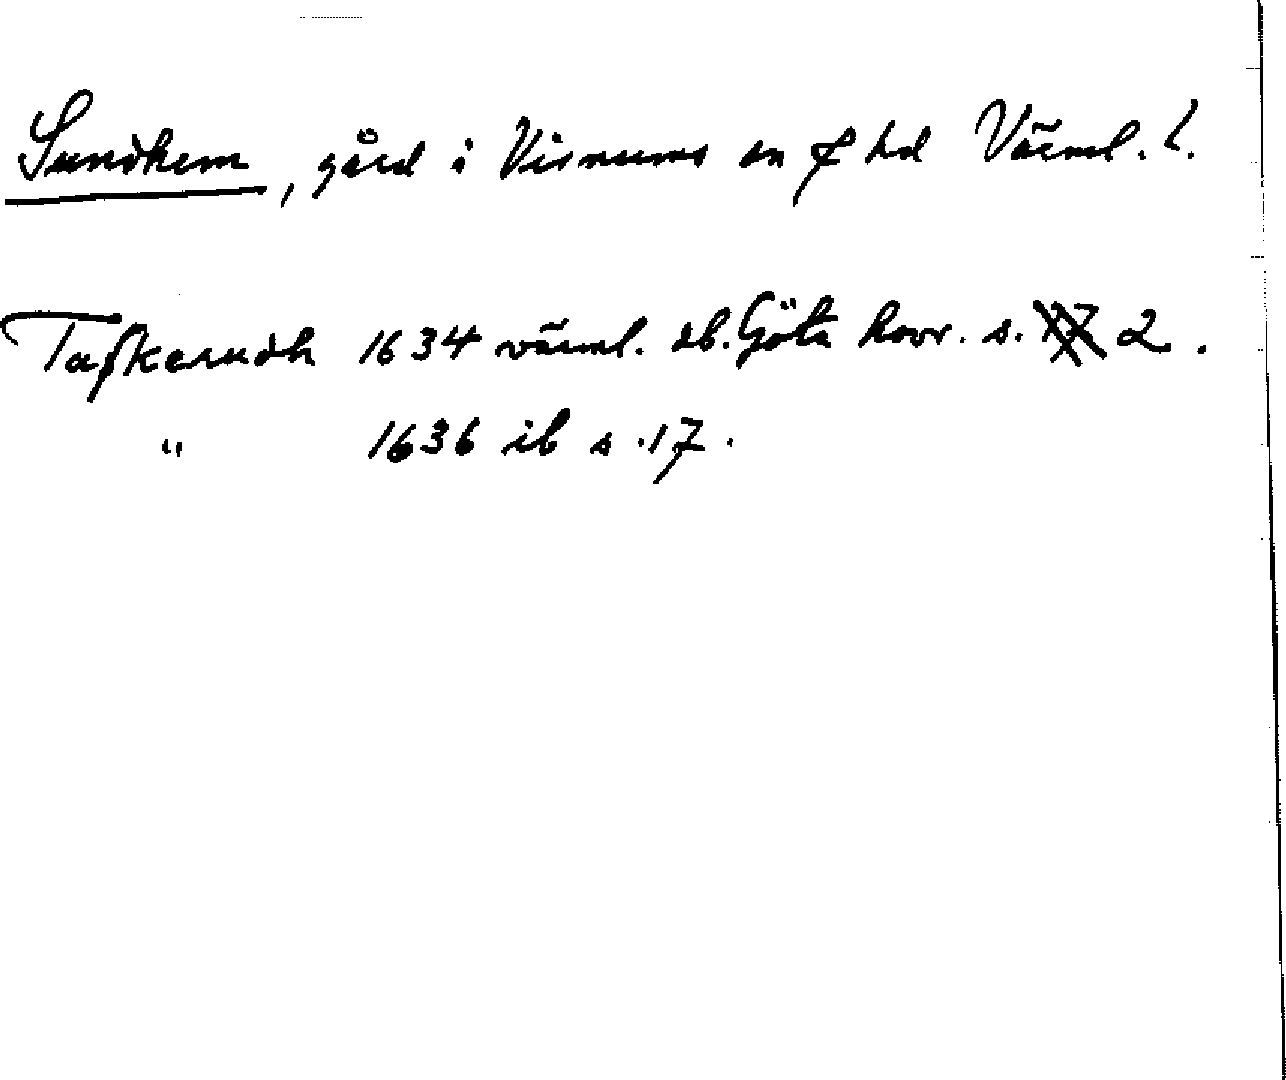 Sundhem, gård i Visnums sn o hd Värml. l.
Tafkerudh 1634 värml. db. Göta hovr. s. 2.
" 1636 ib s. 17.